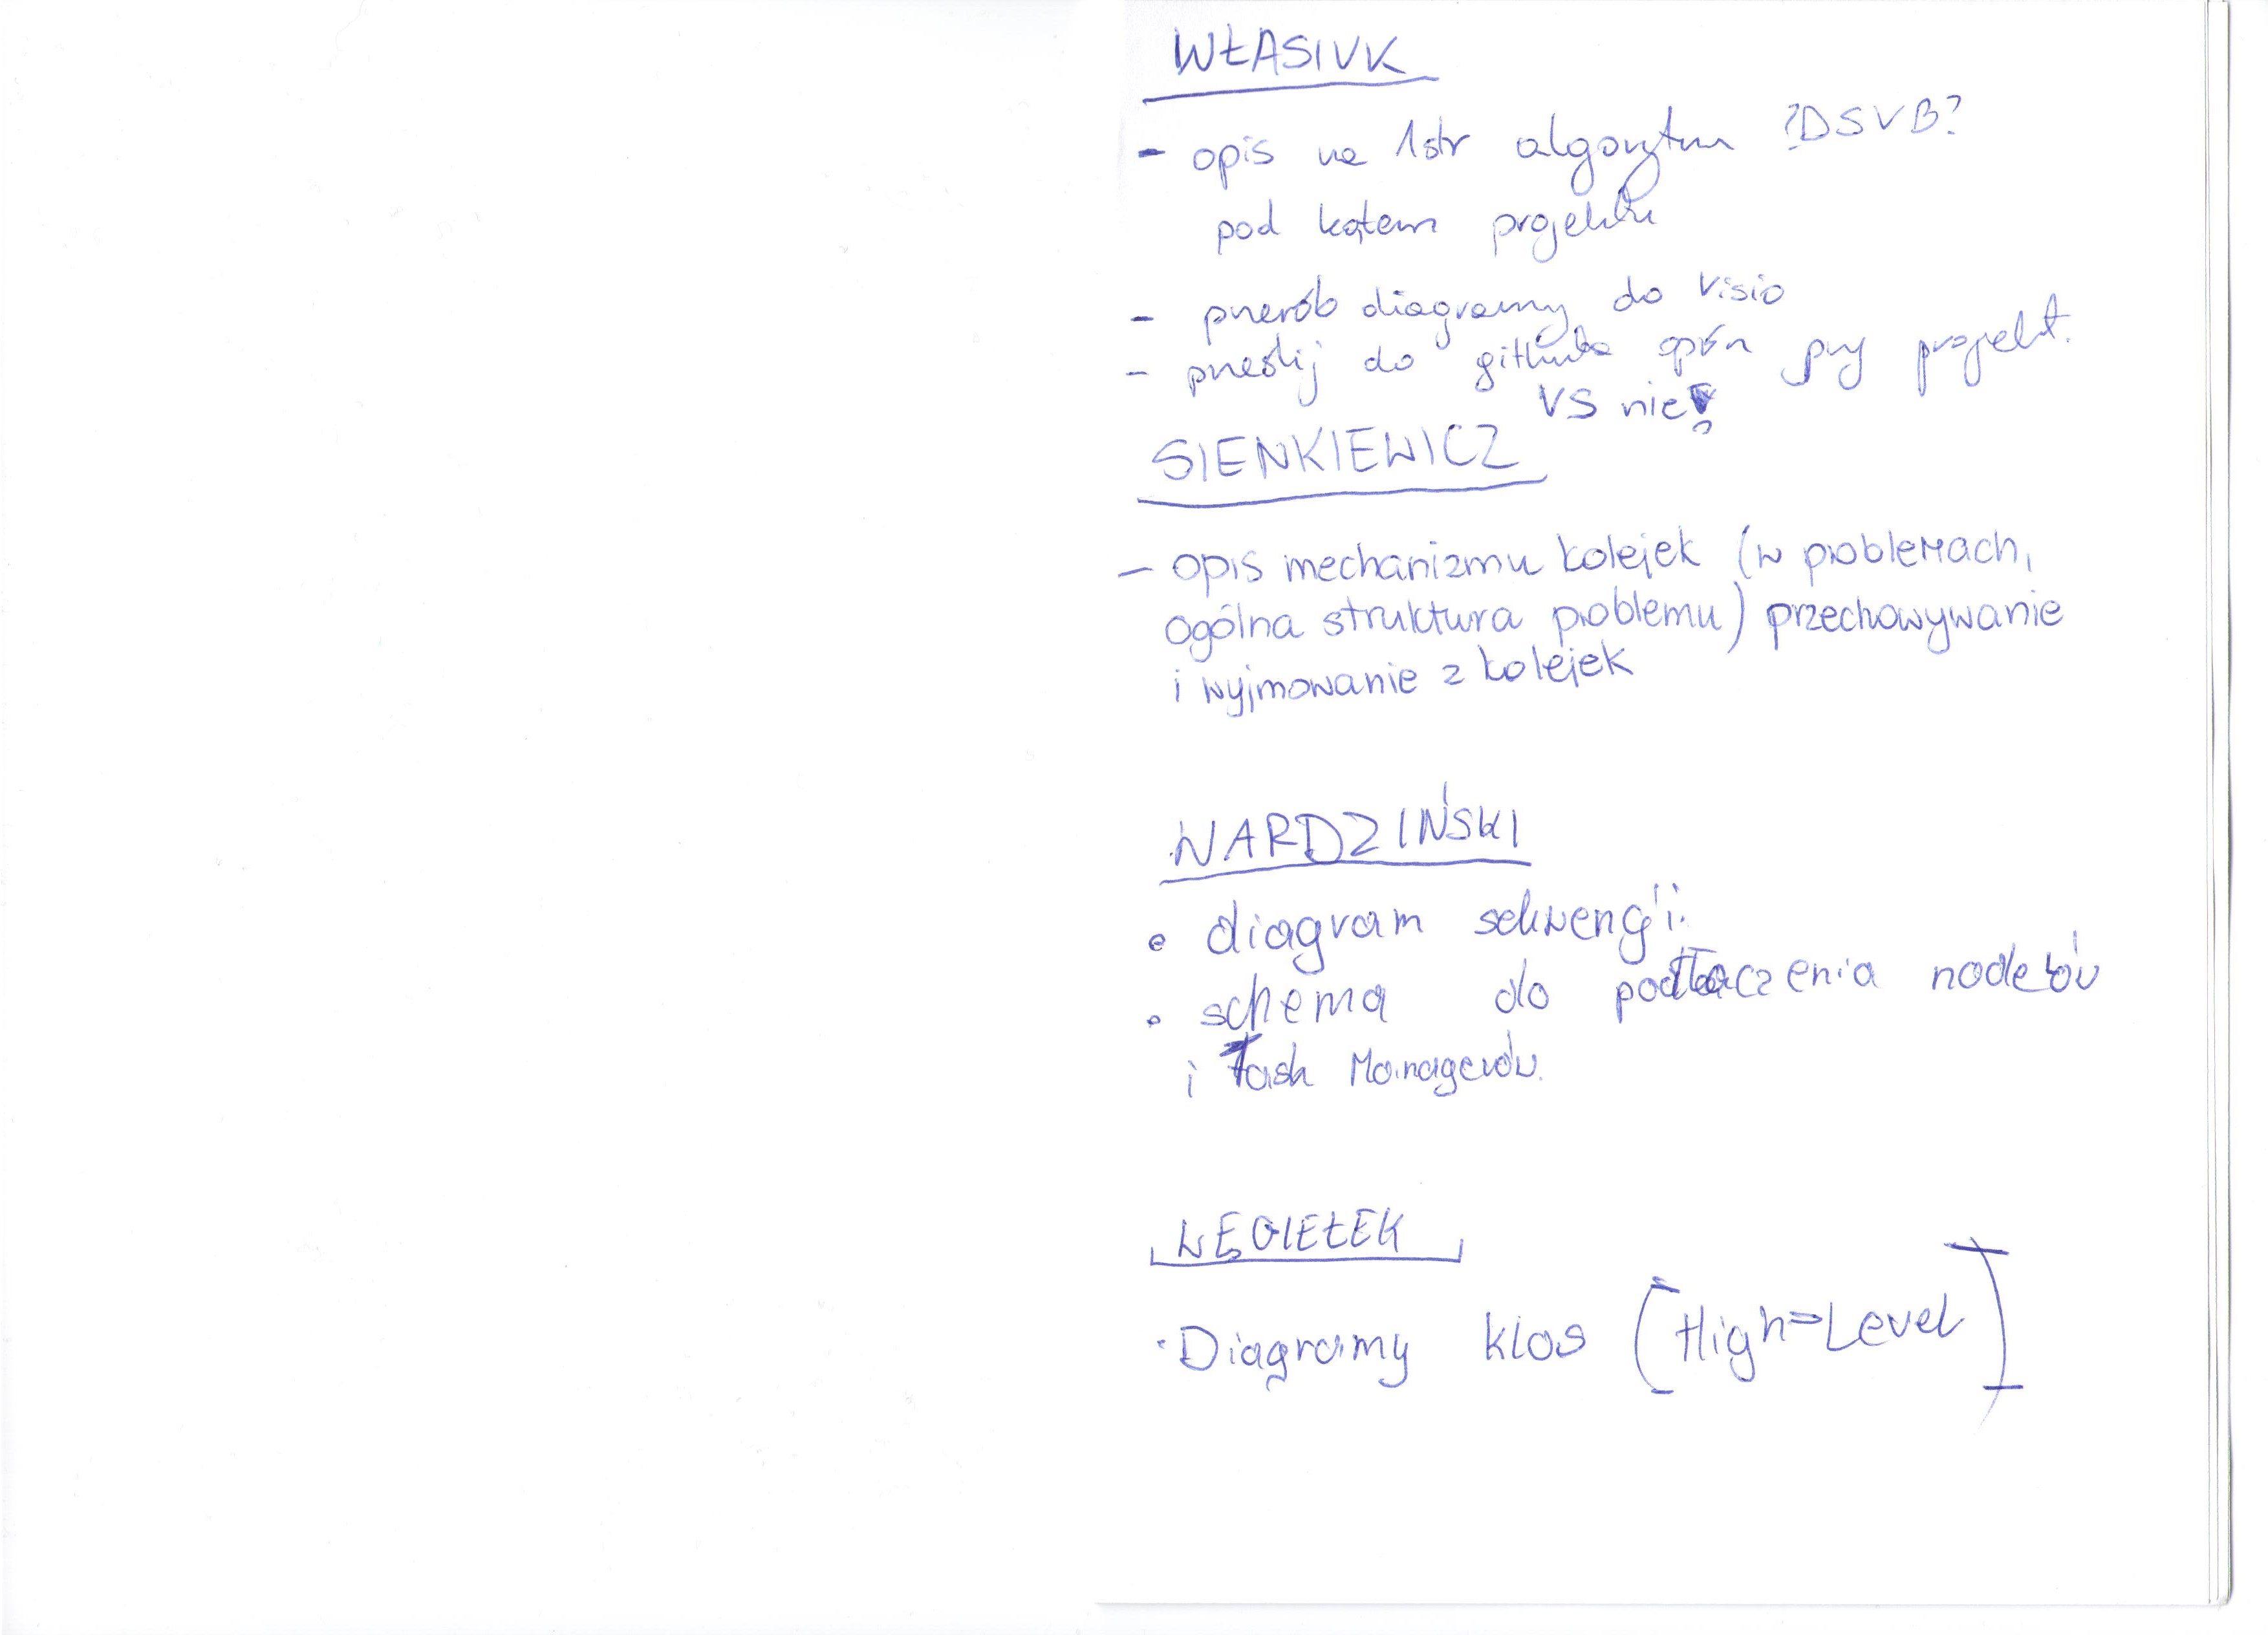 WŁASIUK
- opis na 1str algorytm ?DSVB?
pod kątem projektu
- przerób diagramy do Visio
- prześlij do githuba oprócz przy projekt.
VS nie!
SIENKIEWICZ
- opis mechanizmu kolejek (w problemach,
ogólna struktura problemu) przechowywanie
i wyjmowanie z kolejek
WARDZIŃSKI
• diagram sekwencji.
• schema do podłączenia node'ów
i Task Managerów.
WĘGIEŁEK
· Diagramy klas (High-Level)